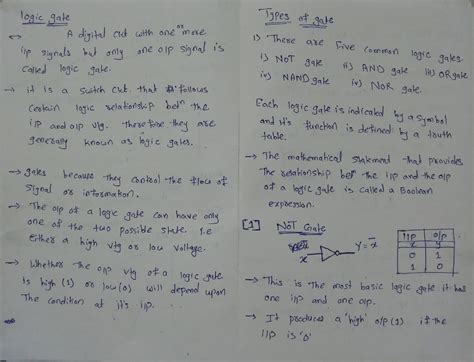 logic gate
← A digital ckt with one or more
i/p signals but only one o/p signal is
called logic gate.
→ it is a switch ckt. that follows
certain logic relationship betn the
i/p and o/p vtg. Therefore they are
generally known as logic gates.
→ gates because they control the flow of
signal or information.
→ The o/p of a logic gate can have only
one of the two possible state. i.e
either a high vtg or low voltage.
→ Whether the o/p vtg of a logic gate
is high (1) or low(0) will depend upon
The condition at it's i/p.
Types of gate
1) There are Five common logic gates.
i) NOT gate ii) AND gate iii) OR gate
iv) NAND gate iv) NOR gate.
Each logic gate is indicated by a symbol
and it's function is defined by a truth
table.
→ The mathematical statement that provides
The relationship betn the i/p and the o/p
of a logic gate is called a Boolean
expression.
[1] NOT Gate
x Y = x̄
I/p o/p
x y
0 1
1 0
→ This is the most basic logic gate it has
one i/p and one o/p.
→ It produced a 'high' o/p (1) if the
i/p is '0'